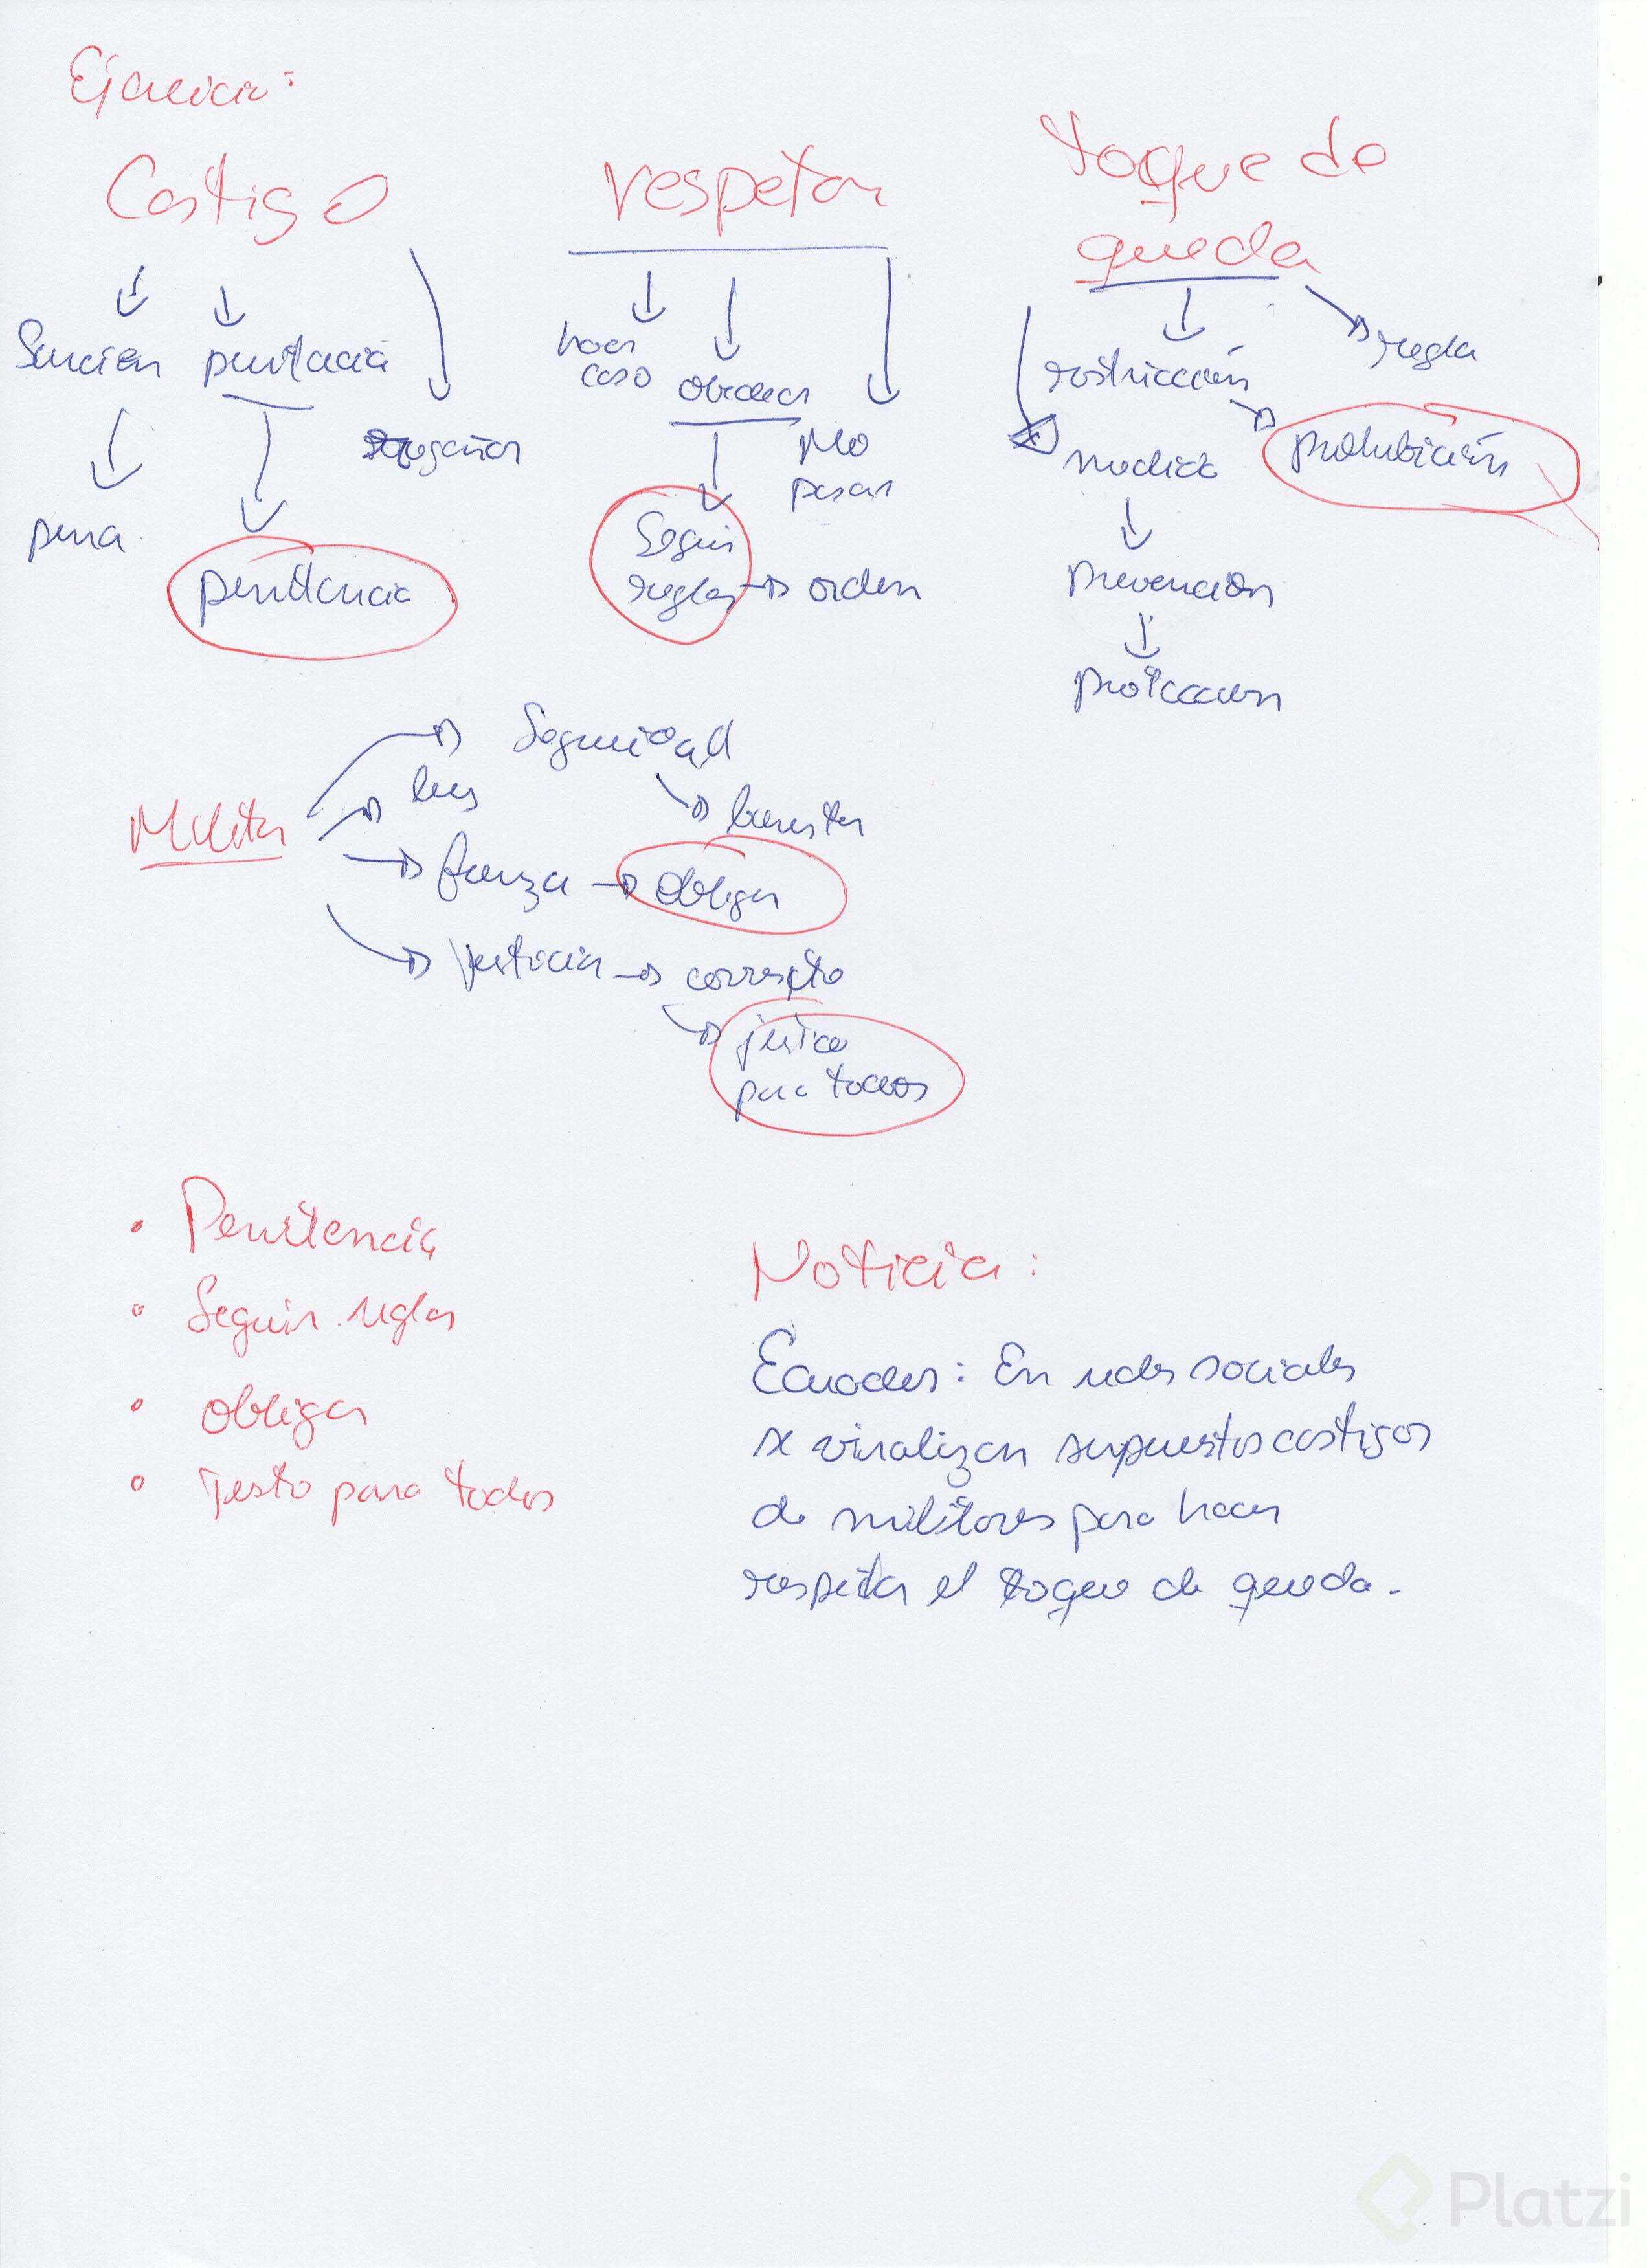 Ejercicio:
Castigo
respetar
toque de
queda
Sanción penitencia
hacer
caso
obedecer
restricción
regla
regañar
No
pesar
medida
prohibición
pena
penitencia
Seguir
reglas
orden
prevención
protección
Seguridad
ley
bienestar
Militar
fuerza
obligar
justicia
correcto
justico
para todos
• Penitencia
• Seguir reglas
• obligar
• Justo para todos
Noticia:
Ecuador: En redes sociales
se viralizan supuestos castigos
de militares para hacer
respetar el toque de queda.
Platzi